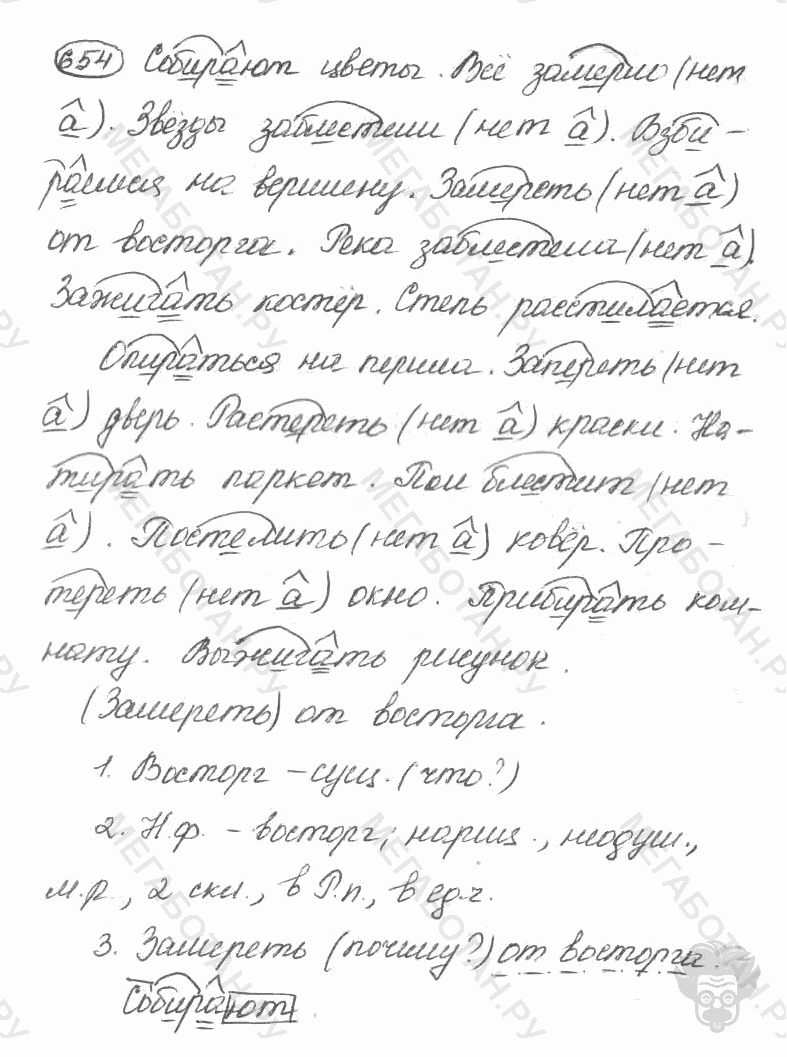 654 Собирают цветы. Всё замерло (нет
а). Звёзды заблестели (нет а). Взби-
раемся на вершину. Замереть (нет а)
от восторга. Река заблестела (нет а).
Зажигать костёр. Степь расстилается.
Опираться на перила. Запереть (нет
а) дверь. Растереть (нет а) краски. На-
тирать паркет. Пол блестит (нет
а). Постелить (нет а) ковёр. Про-
тереть (нет а) окно. Прибирать ком-
нату. Выжигать рисунок.
(Замереть) от восторга.
1. Восторг – сущ. (что?)
2. Н.ф. – восторг; нариц., неодуш.,
м.р., 2 скл., в Р.п., в ед.ч.
3. Замереть (почему?) от восторга.
Собирают.
МЕГАБОТАН.РУ